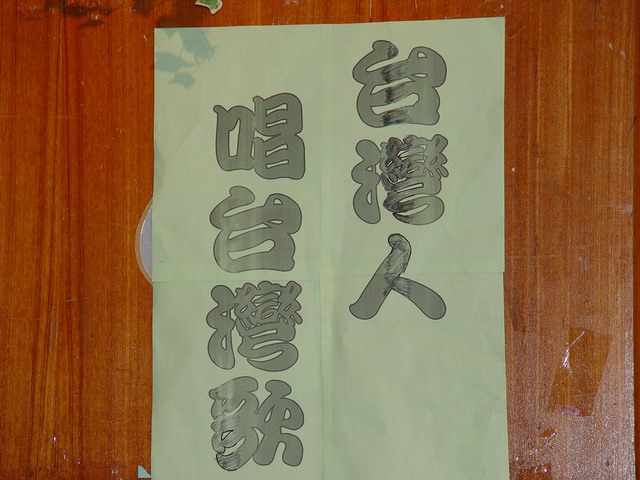 台灣人
唱台灣歌